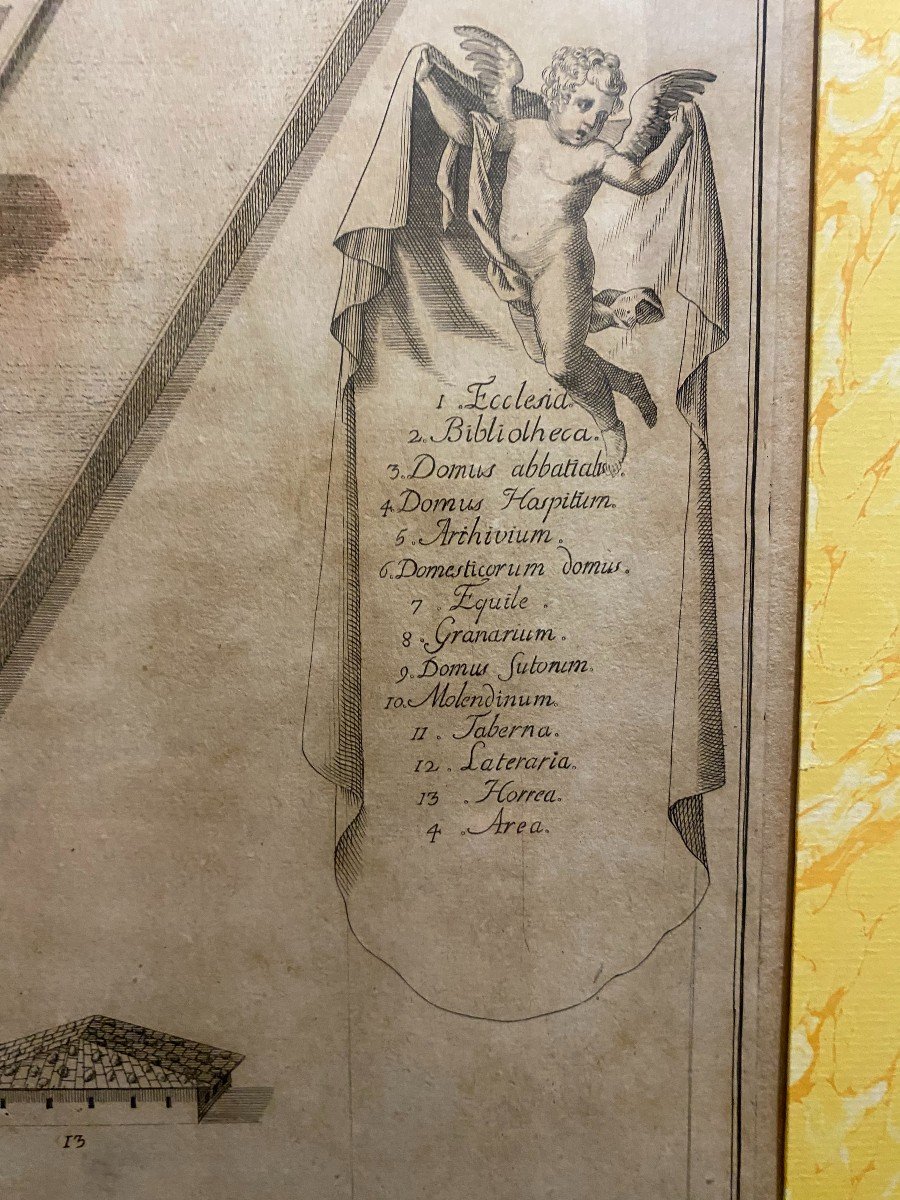 1 . Ecclesia.
2. Bibliotheca.
3. Domus abbatialis.
4. Domus Haspitum.
5. Archivium.
6. Domesticorum domus.
7 . Equile .
8 . Granarium.
9. Domus Sutorum.
10. Molendinum.
11 . Taberna.
12 . Lateraria.
13 . Horrea.
4 . Area.
13